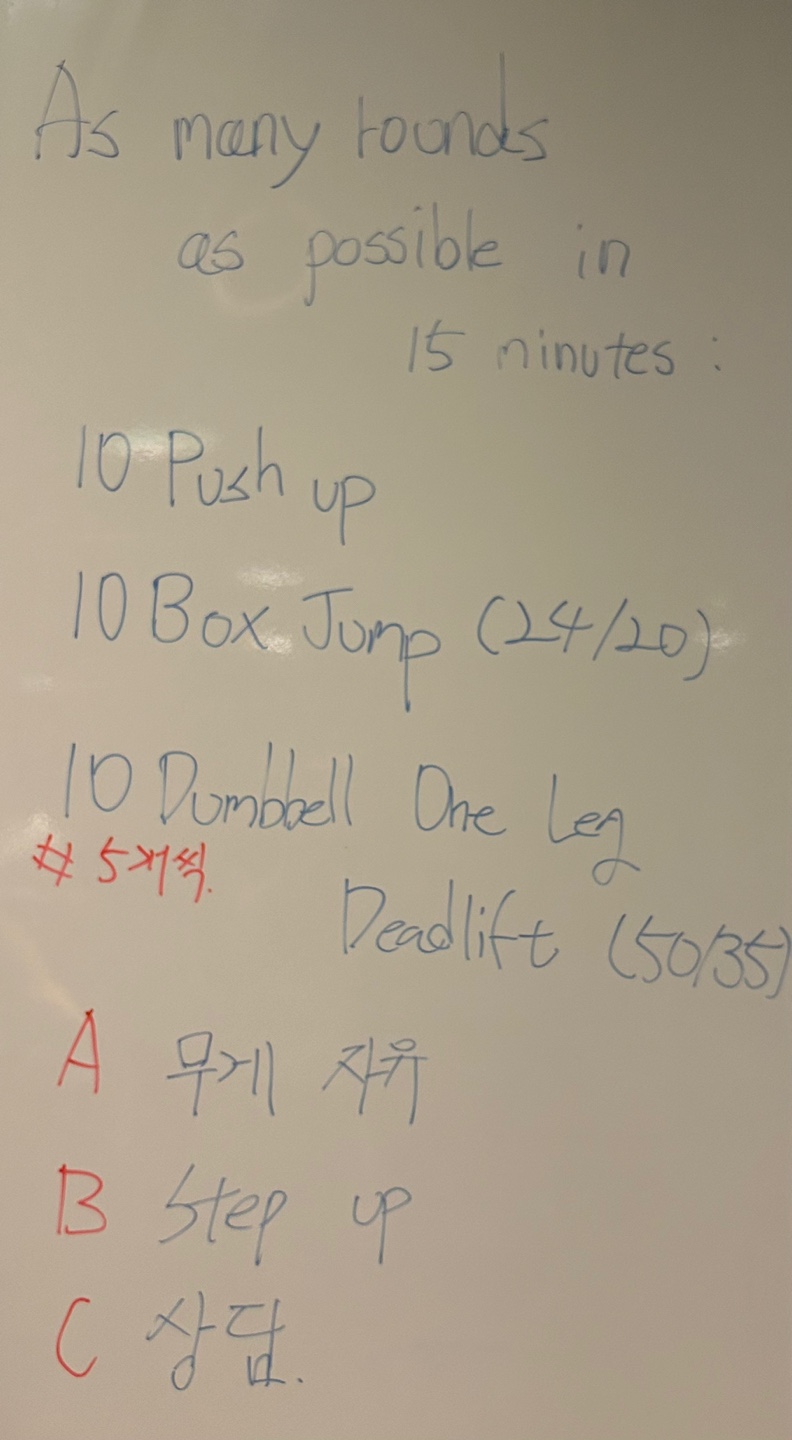 As many rounds
as possible in
15 minutes :
10 Push up
10 Box Jump (24/20)
10 Dumbbell One Leg
# 5개씩.
Deadlift (50/35)
A 무게 자유
B Step up
C 상담.